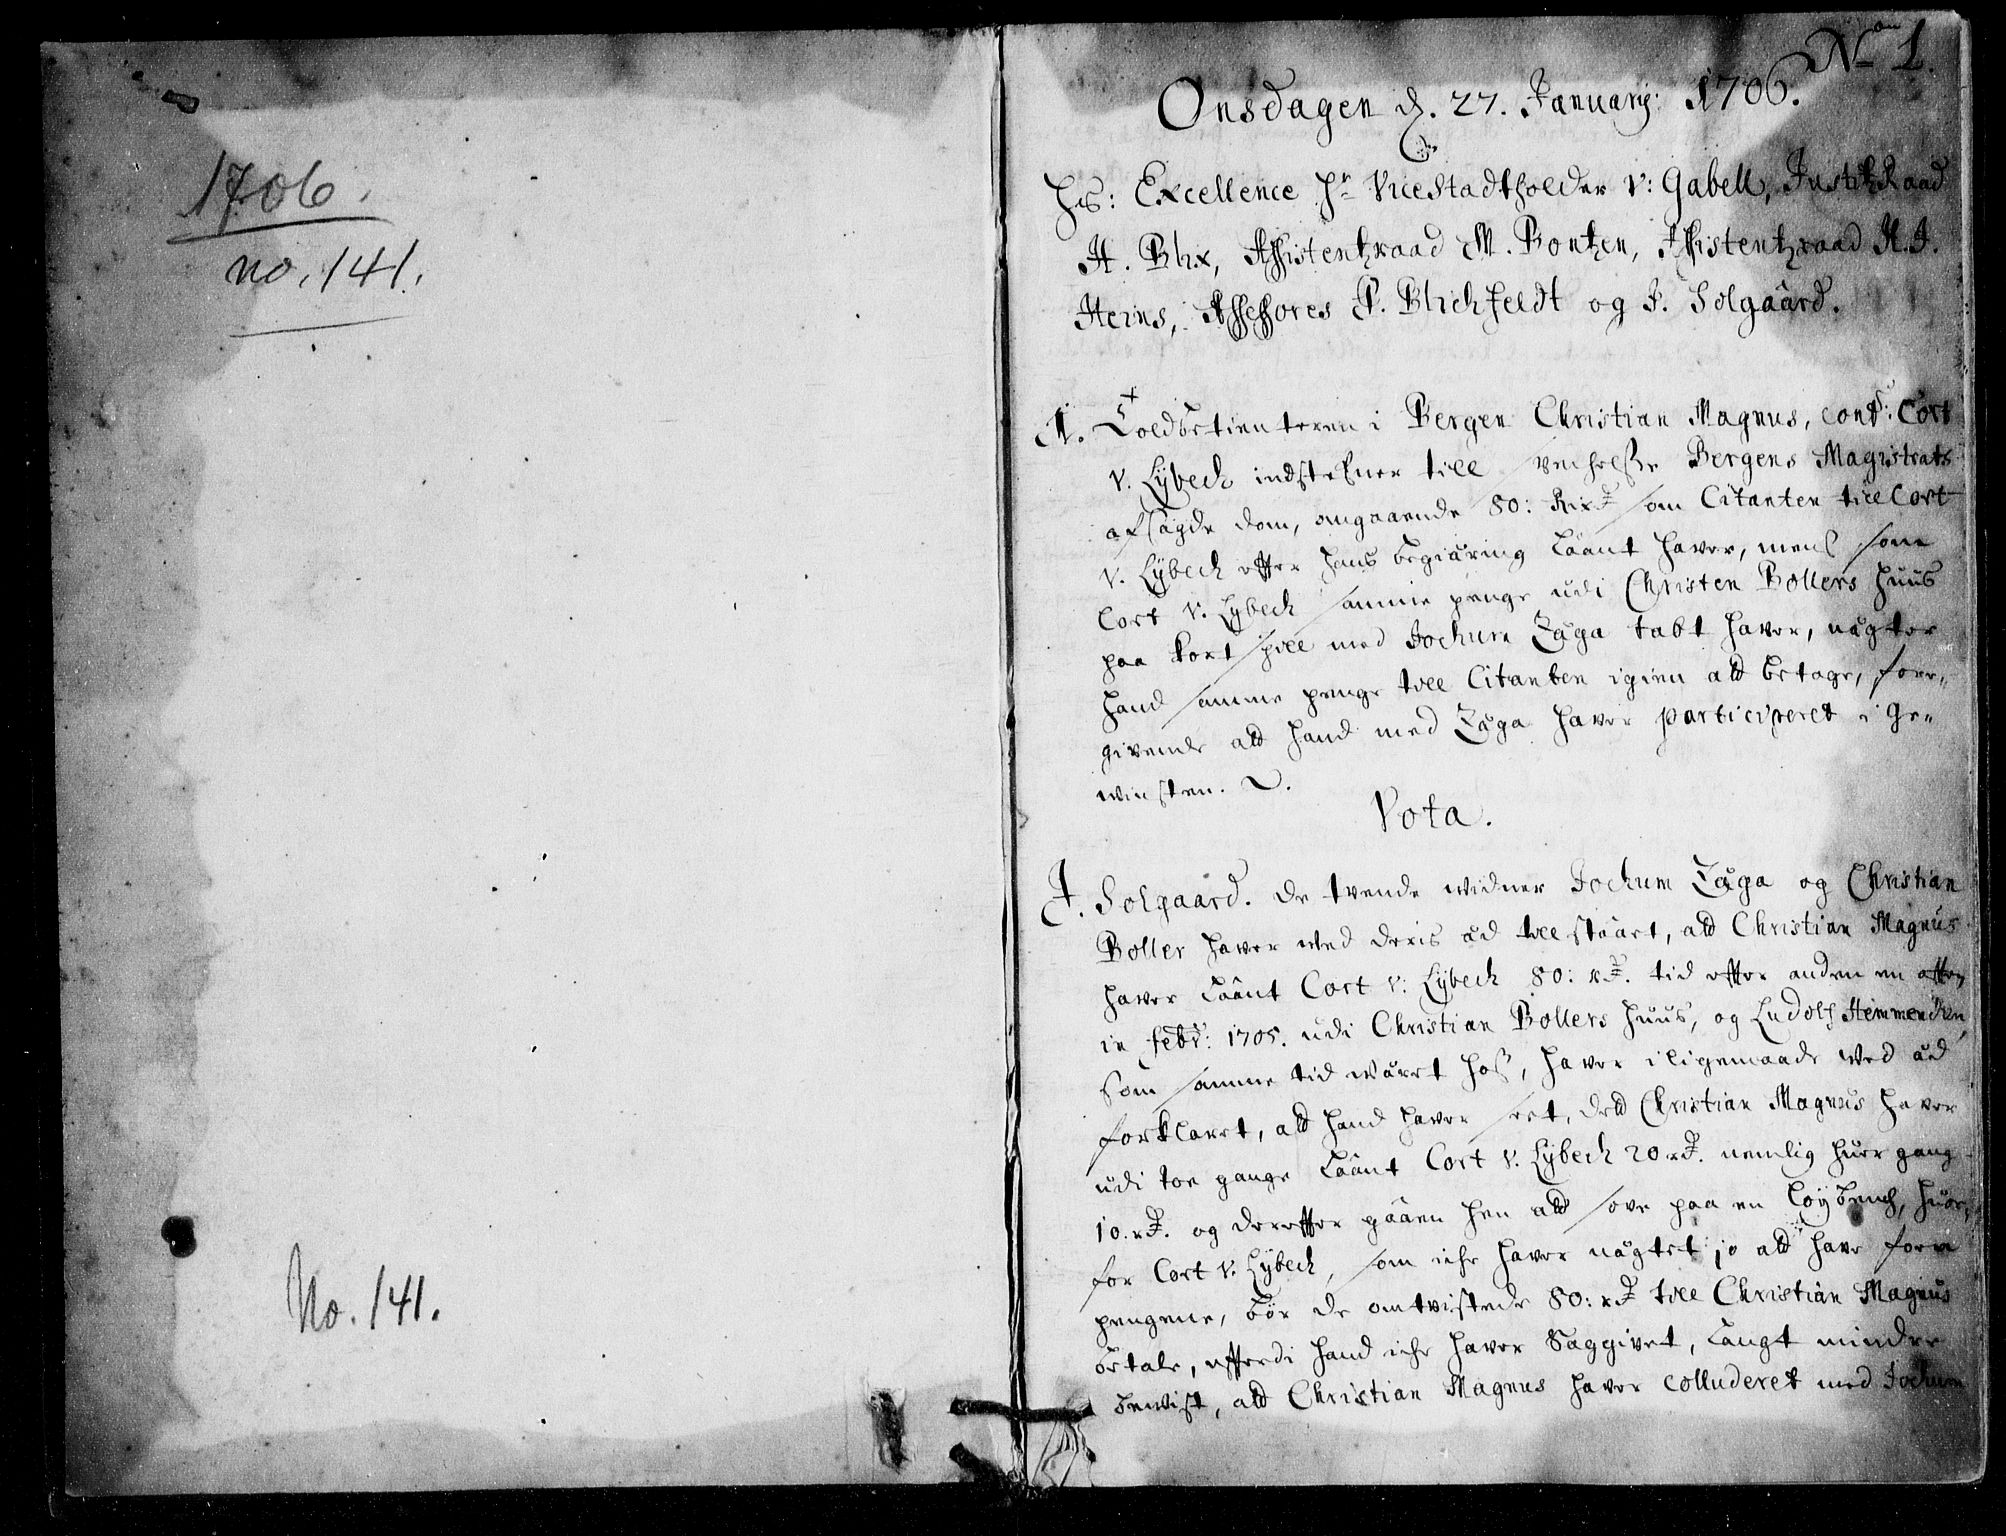 1706.
no. 141.
No. 141.
No 1.
Onsdagen d. 27. Januarij: 1706.
Hs: Excellence Hr ViceStadtholder V: Gabell, JustitzRaad
H. Blix, Assistentzraad M. Bontzen, Assistentzraad H. J.
Heins, Assessores P. Blichfeldt og J. Solgaard.
1. Toldbetienteren i Bergen Christian Magnus, contr: Cort
v. Lybech indstefner till Bergens Magistrats
afsagde dom, angaaende 80: Rixdr som Citanten till Cort
v. Lybech effter hans begiæring laant hafver, mens som
Cort v. Lybech samme penge udi Christen Bollers huus
paa kort spill med Jochum Zaga tabt hafver, nægter
hand samme penge till Citanten igien att betage, fore„
givende att hand med Zaga hafver participeret i ge„
winsten.
Vota.
J. Solgaard. De tvende widner Jochum Zaga og Christian
Boller hafver med deris æd till staaet, att Christian Magnus
hafver laant Cort v: Lybech 80: rdr. tid effter anden en afften
in febr: 1705. udi Christian Bollers huus, og Ludolf Hemmenchen
som samme tid waaret hos, hafver iligemaade med æd
forklaret, att hand hafver seet, det Christian Magnus hafver
udi toe gange laant Cort v. Lybech 20 rdr. nemlig huer gang
10. rdr. og dereffter gaaen hen att sove paa en Løybench, huor„
for Cort v. Lybech, som iche hafver nægtet jo att have faaet
pengene, bør de omtvistede 80: rdr till Christian Magnus
betale, efferdi hand iche hafver Saggivet, langt mindre
beviist, att Christian Magnus hafver colluderet med Jochum